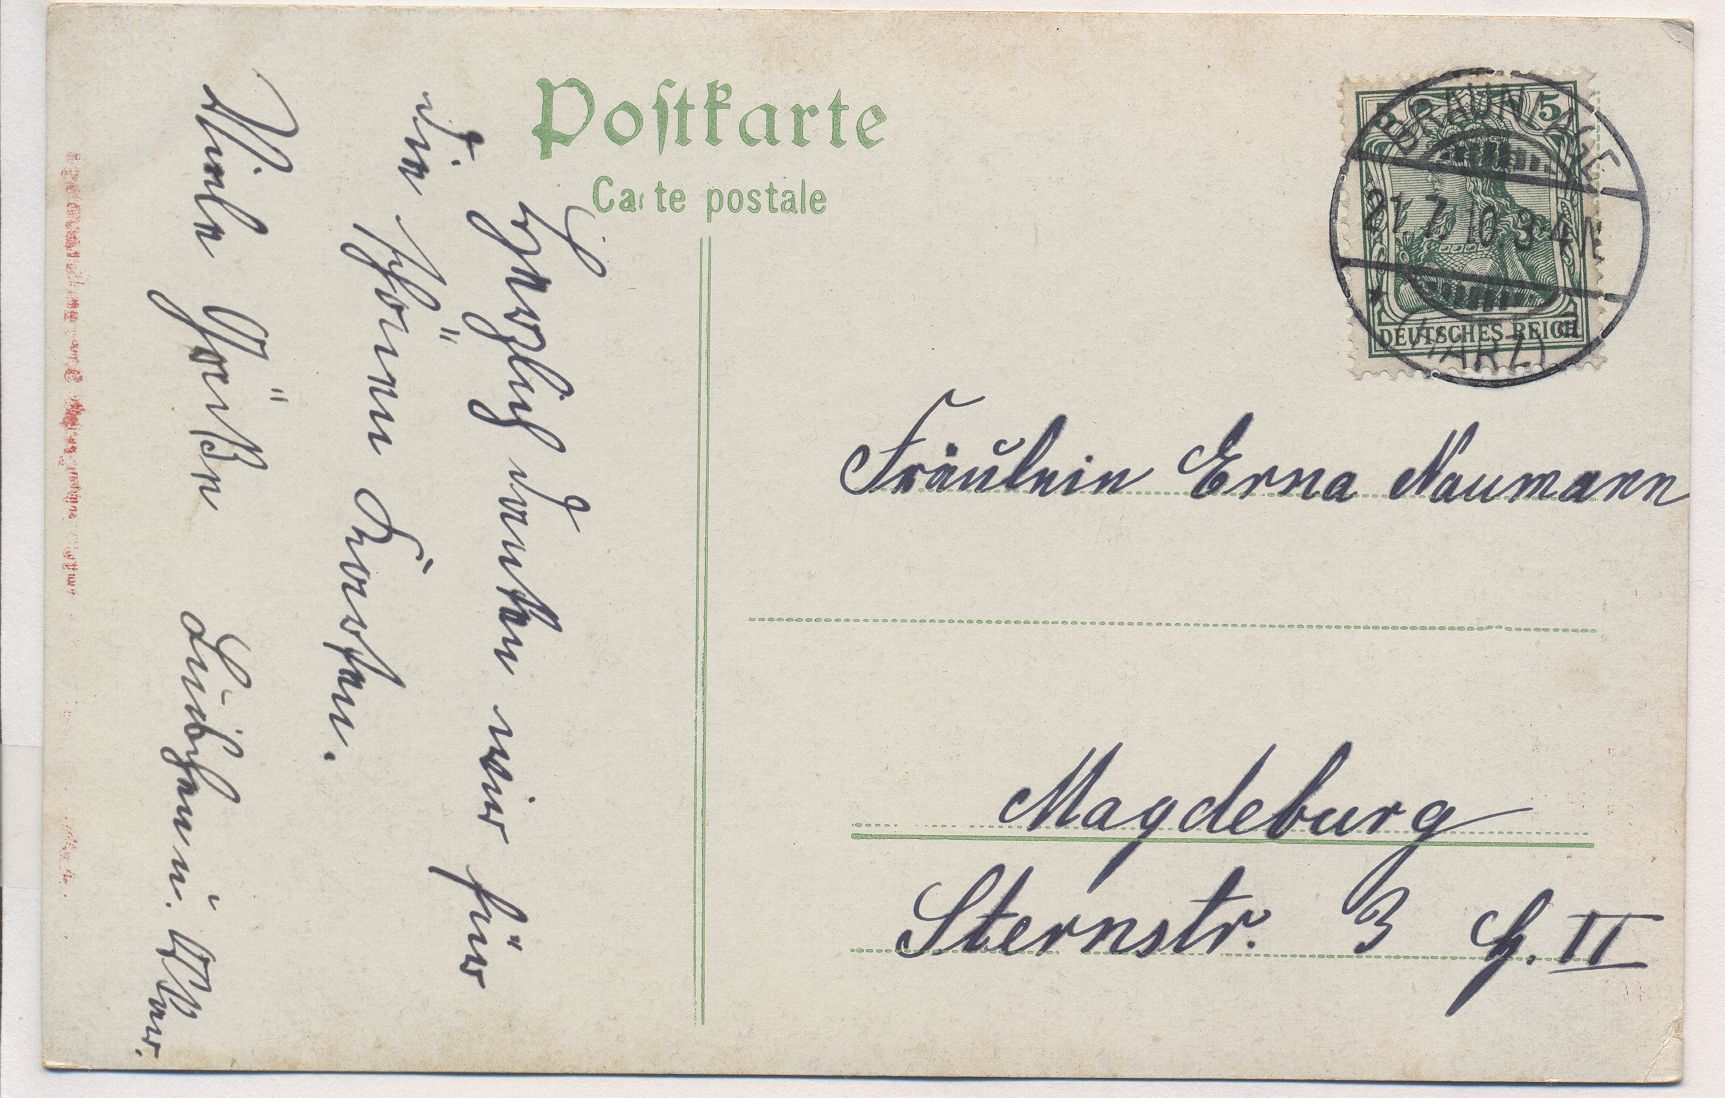 Postkarte
Carte postale
BRAUNLAGE
21.7.10.3-4N
*
(HARZ)
5
DEUTSCHES REICH
Fräulein Erna Naumann
Magdeburg
Sternstr. 3 H. II
Herzlich danken wir für
die schönen Karten.
Viele Grüße